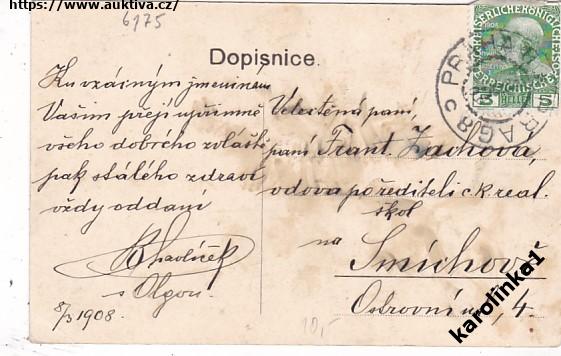 https://www.auktiva.cz/
6175
Dopisnice.
Ku vzácným jmeninám
Vašim přeji upřímně
všeho dobrého zvláště
pak stálého zdraví
vždy oddaní
K Havlíček
s Olgou.
8/3 1908.
Velectěná paní,
paní Frant. Zachova,
vdova po řediteli c.k. real.
škol
na
Smíchově
Ostrovní ul. 4
10,-
5 HELLER 5
PRAG 8
karolinka1